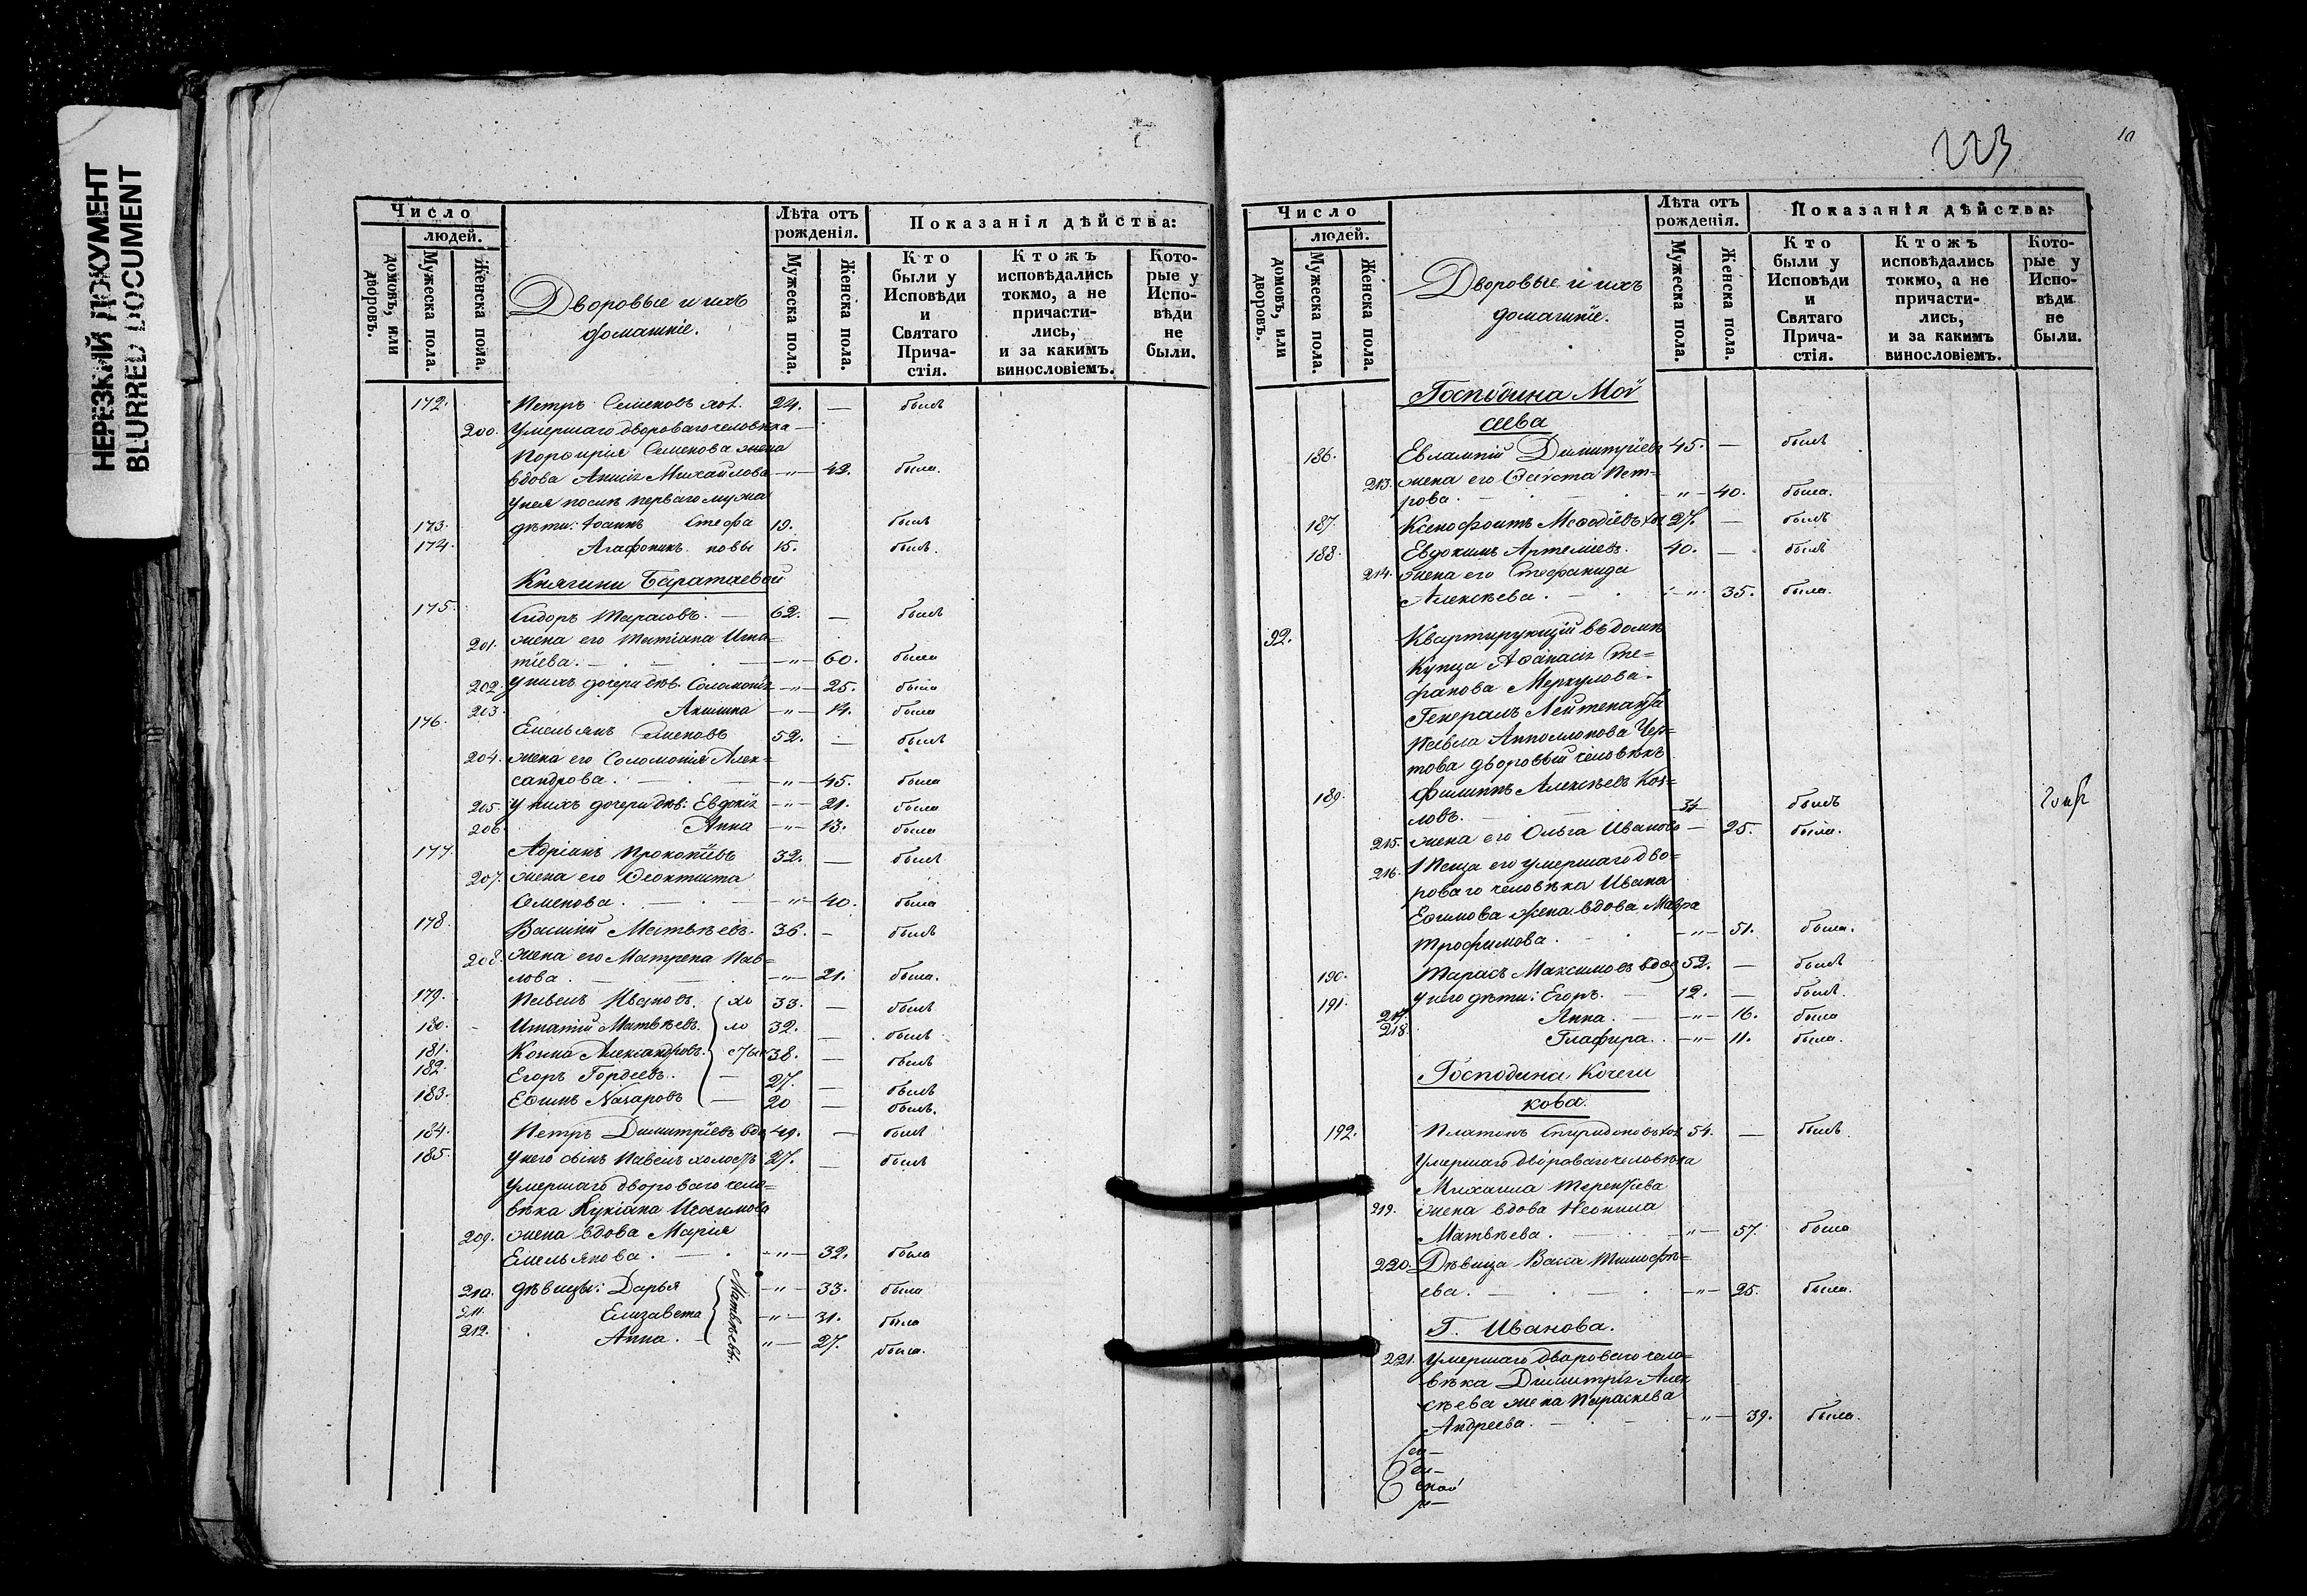 НЕРЕЗКИЙ ДОКУМЕНТ
BLURRED DOCUMENT
Число
людей.
домовъ, или дворовъ.
Мужеска пола.
Женска пола.
Дворовые и ихъ
домашніе.
Лѣта отъ рожденія.
Мужеска пола.
Женска пола.
Показанія дѣйства:
Кто были у Исповѣди и Святаго Прича-стія.
Ктожъ исповѣдались токмо, а не причасти-лись, и за какимъ винословіемъ.
Кото-рые у Испо-вѣди не были.
172. Петръ Семеновъ хол. 24. — былъ
200. Умершаго двороваго человѣка
Порфирія Семенова жена
вдова Анисія Михайлова —"— 42. была.
У нея посынк перваго мужа
173. дѣти: Іоаннъ Стефа 19. былъ
174. Агафоникъ. новы 15. былъ.
Княгини Баратаевой
175. Сидоръ Тарасовъ. 62. — былъ
201. жена его Татіана Игна=
тіева. —"— 60. была
202. У нихъ дочери дѣв. Соломонія —"— 25. была
203. Акилина —"— 14. была
176. Емельянъ Семеновъ 52. — былъ
204. жена его Соломонія Алек=
сандрова. —"— 45. была
205. У нихъ дочери дѣв: Евдокія —"— 21. была
206. Анна —"— 13. была
177. Адріанъ Прокопіевъ 32. — былъ
207. жена его Феоктиста
Семенова. —"— 40. была
178. Василій Матвѣевъ. 36. — былъ
208. жена его Матрена Пав=
лова —"— 21. была.
179. Павелъ Ивановъ. { хо 33. — былъ
180. Игнатій Матвѣевъ. ло 32. — былъ
181. Козма Александровъ. стые 38. — былъ
182. Егоръ Гордеевъ. 27. — былъ
183. Ефимъ Назаровъ 20 — былъ.
184. Петръ Димитріевъ вдо 49. — былъ
185. У него сынъ Павелъ холостъ 27. — былъ
Умершаго двороваго чело=
вѣка Лукіана
209. жена вдова Марія
Емельянова. —"— 32. была
210. дѣвицы: Дарья —"— 33. была
211. Елизавета —"— 31. была
212. Анна. —"— 27. была.
Матвѣевы.
223
10
Число
людей.
домовъ, или дворовъ.
Мужеска пола.
Женска пола.
Дворовые и ихъ
домашніе.
Лѣта отъ рожденія.
Мужеска пола.
Женска пола.
Показанія дѣйства:
Кто были у Исповѣди и Святаго Прича-стія.
Ктожъ исповѣдались токмо, а не причасти-лись, и за какимъ винословіемъ.
Кото-рые у Испо-вѣди не были.
Господина Мои
сеева
186. Евлампій Димитріевъ 45. — былъ
213. жена его Пет=
рова. —"— 40. была.
187. Ксенофонтъ Меѳодіевъ хол 27. — былъ
188. Евдокимъ Артеміевъ. 40. — былъ
214. жена его Стефанида
Алексѣева. —"— 35. была.
92. Квартирующій въ домѣ
Купца Аѳанасія Сте=
фанова Меркулова.
Генералъ Лейтенанта
Павла Апполонова Чер=
това дворовый человѣкъ
189. Филиппъ Алексѣевъ Коз=
ловъ. 34 былъ
215. жена его Ольга Иванова — 25. была.
216. Теща его умершаго дво=
роваго человѣка Ивана
Ефимова жена вдова Мавра
Трофимова. —"— 51. была.
190. Тарасъ Максимовъ вдов 52. — былъ
191. У него дѣти: Егоръ. 12. — былъ.
217. Анна. —"— 16. была
218. Глафира. —"— 11. была.
Господина Кочеги
кова.
192. Платонъ Спиридоновъ хол 54. — былъ
Умершаго двороваго человѣка
Михаила Терентіева
219. жена вдова Неонила
Матвѣева. —"— 57. была
220. Дѣвица Васса Тимофѣ=
ева. —"— 25. была.
Г. Иванова.
221. Умершаго двороваго чело=
вѣка Димитрія Алек
сѣева жена Параскева
Андреева. —"— 39. была.